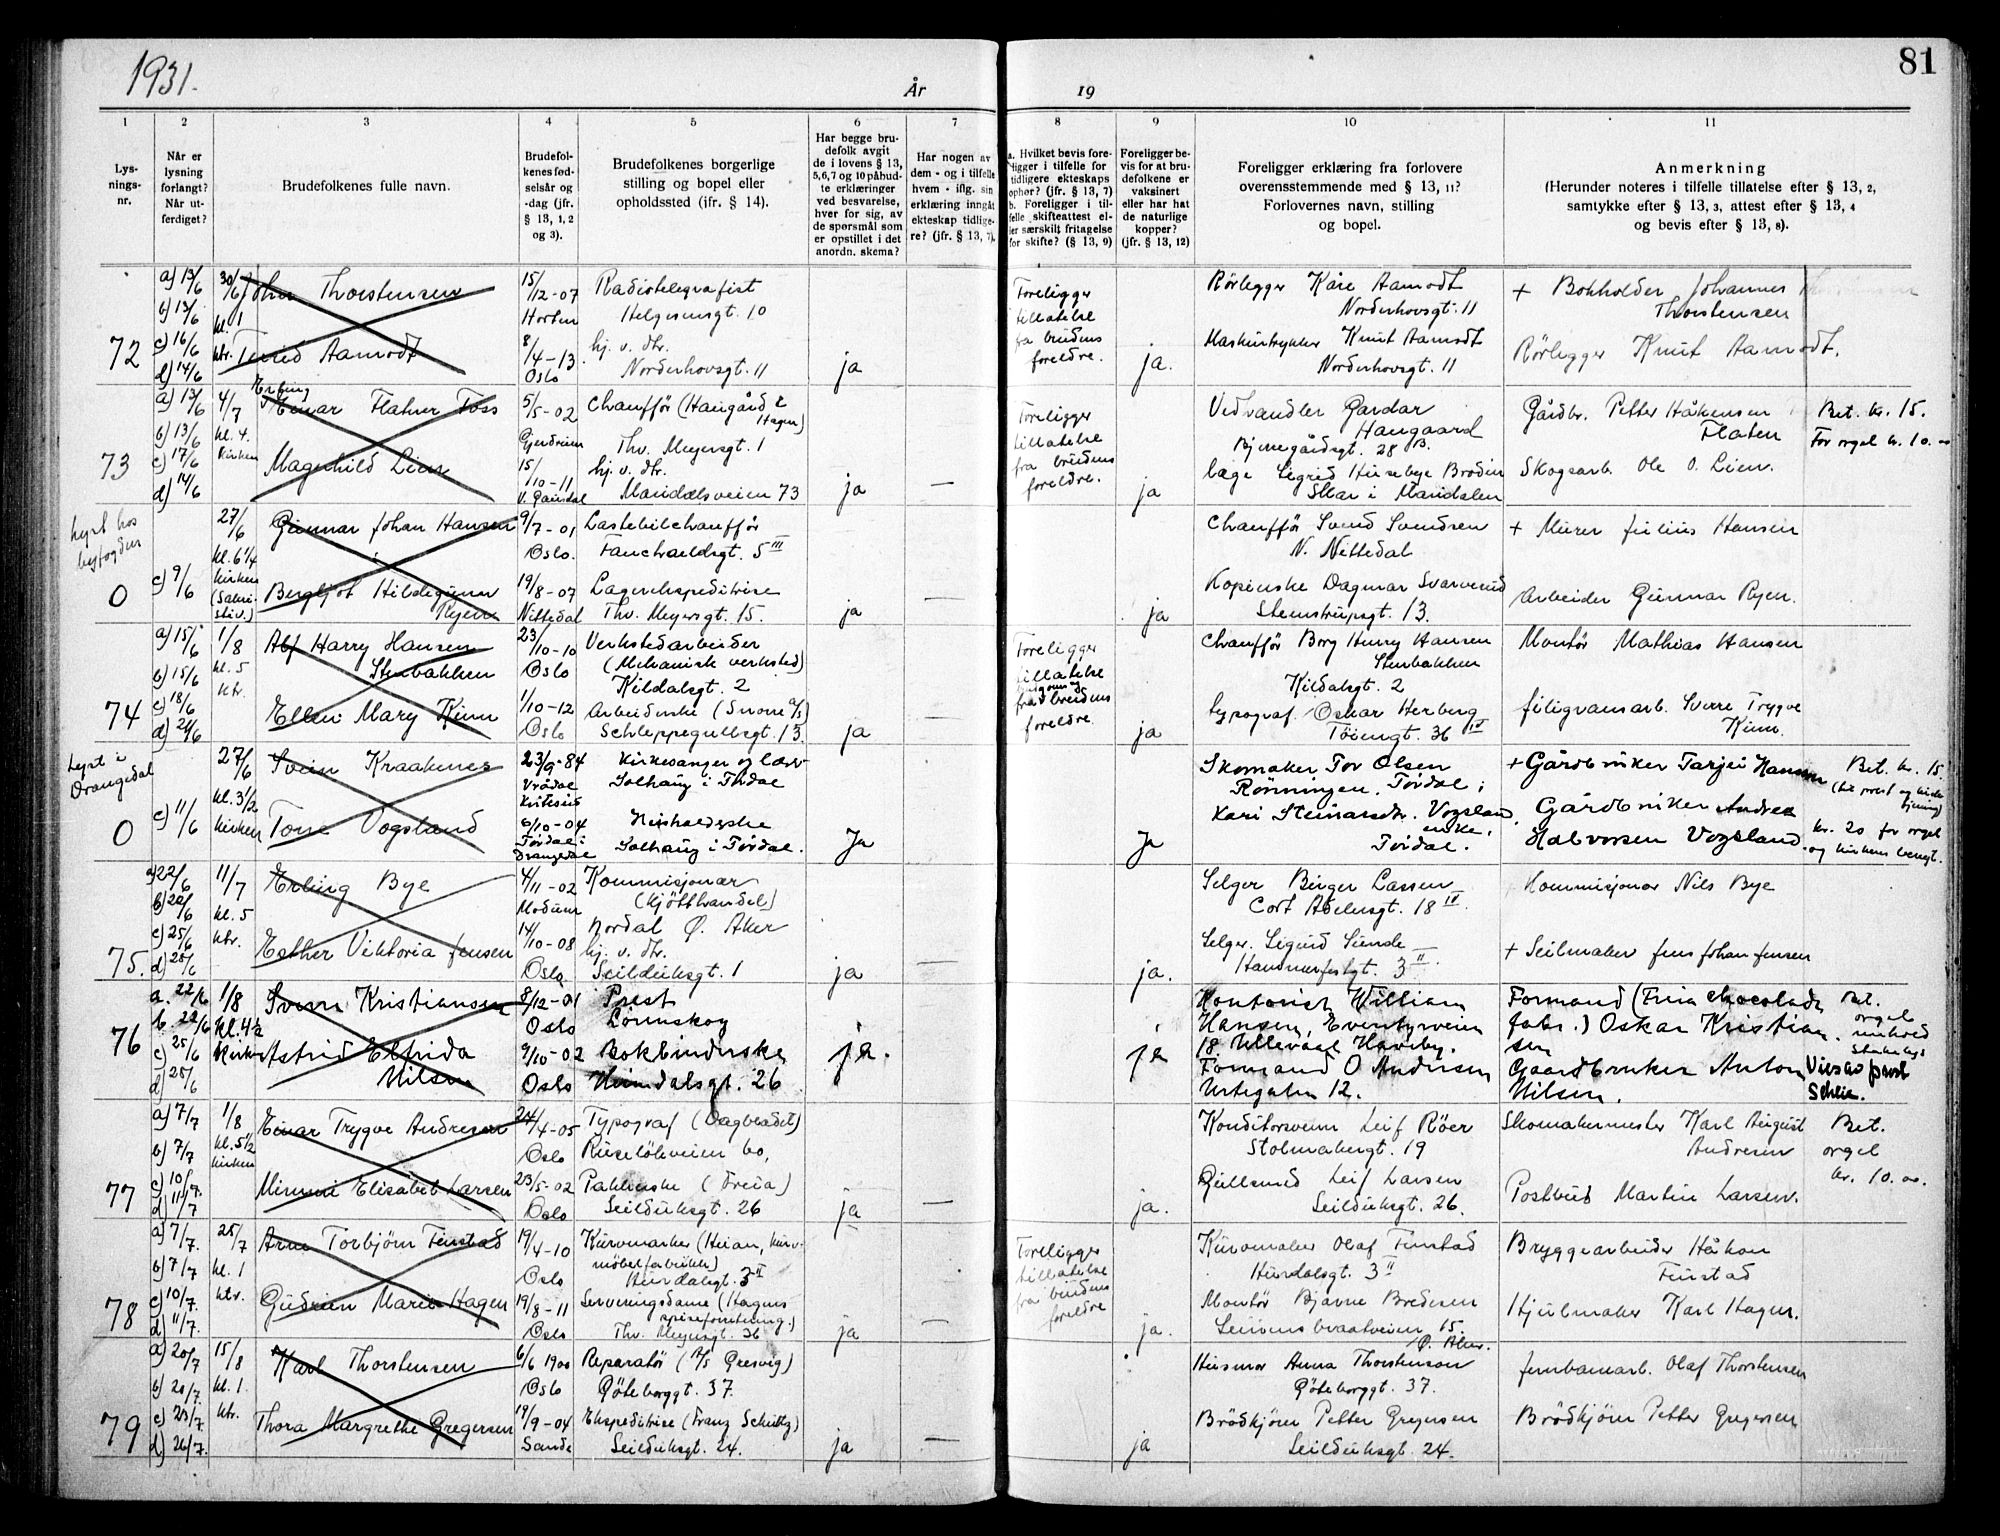 1931.
År
19
81
1
2
3
4
5
6
7
8
9
10
11
Lys-
nings-
nr.
Når er
lysning
forlangt?
Når ut-
ferdiget?
Brudefolkenes fulle navn.
Brudefol-
kenes fød-
selsår og
-dag (jfr.
§ 13, 1, 2
og 3).
Brudefolkenes borgerlige
stilling og bopel eller
opholdssted (ifr. § 14).
Har begge bru-
defolk avgit
de i lovens § 13,
5,6,7 og 10 påbud-
te erklæringer
ved besvarelse,
hver for sig, av
de spørsmål som
er opstillet i det
anordn. skema?
Har nogen av
dem - og i tilfelle
hvem - iflg. sin
erklæring inngåt
ekteskap tidlige-
re? (jfr. § 13, 7).
a. Hvilket bevis fore-
ligger i tilfelle for
tidligere ekteskaps
ophør? (jfr. § 13, 7)
b. Foreligger i til-
felle skifteattest el-
ler særskilt fritagelse
for skifte? (§ 13, 9)
Foreligger be-
vis for at bru-
defolkene er
vaksinert
eller har hat
de naturlige
kopper?
(jfr. § 13, 12)
Foreligger erklæring fra forlovere
overensstemmende med § 13, 11?
Forlovernes navn, stilling
og bopel.
Anmerkning
(Herunder noteres i tilfelle tillatelse efter § 13, 2,
samtykke efter § 13, 3, attest efter § 13, 4
og bevis efter § 13, 8).
72
a) 13/6
b) 13/6
c) 16/6
d) 14/6
30/6
kl. 1
ktr.
John Thorstensen
Aamodt
15/12-07
Horten
8/4-13
Oslo
Radiotelegrafist
Helgesensgt. 10
hj. v. dr.
Norderhovsgt. 11
ja
Foreligger
tillatelse
fra brudens
foreldre.
ja.
Rørlegger Kåre Aamodt
Norderhovsgt. 11
Maskintrykker Knut Aamodt
Norderhovsgt. 11
+ Bokholder Johannes
Thorstensen
Rørlegger Knut Aamodt.
73
a) 13/6
b) 13/6
c) 17/6
d) 14/6
4/7
kl. 4.
kirken
Erling
Einar Flatner Foss
Magnhild Lien
5/5-02
Gjerdrum
15/10-11
Chauffør (Haugård &
Hagen)
Thv. Meyersgt. 1
hj. v. dr.
Maridalsveien 73
ja
—
Foreligger
tillatelse
fra brudens
foreldre.
ja
Vedhandler Gardar
Haugaard
Bjerregårdsgt. 28 B.
læge Sigrid Husebye Brodin
Skar i Maridalen
Gårdbr. Petter Håkensen
Flaten
Skogsarb. Ole O. Lien.
Bet. kr. 15.
For orgel kr. 10.00
lyst hos
byfogden
0
c) 9/6
27/6
kl. 6 1/4
kirken
(Sakri-
stiv.)
Gunnar Johan Hansen
Bergljot Hildegunn
Ryen
9/7-01
Oslo.
19/8-07
Nittedal
Lastebilchauffør
Fauchaldsgt. 5 III
Lagerekspeditrise
Thv. Meyersgt. 15.
ja
ja
Chauffør Svend Svendsen
N. Nittedal
Dagmar Svarverud
Stenstrupgt. 13.
+ Murer Julius Hansen
Arbeider Gunnar Ryen.
74
a) 15/6
b) 15/6
c) 18/6
d) 24/6
1/8
kl. 5
ktr.
Alf Harry Hansen
Stenbakken
Ellen Mary Kinn
23/10-10
Oslo
1/10-12
Oslo
Verkstedarbeider
(Mekanisk verksted)
Kildalsgt. 2
Schleppegrellsgt. 13.
ja
—
Foreligger
tillatelse
brudgom og
fra brudens
foreldre.
ja
Chauffør Borg Henry Hansen
Stenbakken
Kildalsgt. 2
typograf. Oskar Herberg
Tøiengt. 36 IV
Montør Mathias Hansen
filigransarb. Sverre Trygve
Kinn.
Lyst i
Drangedal
0
c) 11/6
27/6
kl. 3 1/2
kirken
Svein Kraakenes
Tone Vogsland
23/9-84
Vrådal
Kviteseid
6/10-04
Tørdal i
Drangedal
Kirkesanger og lærer
Solhaug i Tørdal
Husholderske
Solhaug i Tørdal.
Ja
Ja
Skomaker Tov Olsen
Rønningen, Tørdal;
Kari Steinarsdr. Vogsland,
enke,
Tørdal.
+ Gårdbruker Tarjei Hansen
Gårdbruker Andrea
Halvorsen Vogsland.
Bet. kr. 15.
kr. 20 for orgel
og kirkens benyt.
75.
a) 22/6
b) 22/6
c) 25/6
d) 25/6
11/7
kl. 5
ktr.
Erling Bye
Esther Viktoria Jensen
4/11-02
Modum
14/10-08
Oslo
Kommisjonær
(Kjøtthandel)
Nordal Ø. Aker
hj. v. dr.
Seilduksgt. 1
ja
—
ja.
Selger Birger Lassen
Cort Adelersgt. 18 IV.
Selger. Sigurd Sunde —
Hammerfestgt. 3 II
Kommisjonær Nils Bye
+ Seilmaker Jens Johan Jensen
76
a. 22/6
b. 22/6
c) 25/6
d) 25/6
1/8
kl. 4 1/2
Kirken
Svenn Kristiansen
Astrid Elfrida
Nilsen
8/12-01
Oslo
9/10-02
Oslo
Prest
Lørenskog
Bokbinderske
Heimdalsgt. 26
ja.
ja
Kontorist William
Hansen, Eventyrveien
18. Ullevaal Haveby.
Formand O Andersen
Urtegaten 12.
Formand (Freia chocolade
fabr.) Oskar Kristian-
sen
Gaardbruker Anton
Nilsen.
Bet.
orgel
Schie.
77
a) 7/7
b) 7/7
c) 10/7.
d) 11/7
1/8
kl. 5 1/2
kirken
Einar Trygve Andresen
Minnie Elisabet Larsen
24/4-05
Oslo
23/5-02
Oslo
Typograf (Dagbladet)
Ruseløkveien 60,
Pakkerske (Freia)
Seilduksgt. 26
ja
—
ja.
Konditorsvenn Leif Røer
Stolmakergt. 19
Gullsmed Leif Larsen
Seilduksgt. 26.
Skomakermester Karl August
Andresen
Postbud Martin Larsen.
Bet.
orgel
kr. 10.00.
78
a) 7/7.
b) 7/7
c) 10/7.
d) 11/7.
25/7
kl. 1
ktr.
Arne Torbjørn Finstad
Gudrun Marie Hagen
19/4-10
Oslo
19/8-11
Oslo
Kurvmaker (Huan, kurv-
møbelfabrikk)
Hurdalsgt. 3 II
Serveringsdame (Hagens
spiseforretning.)
Thv. Meyersgt. 36
ja
—
Foreligger
tillatelse
fra brudens
foreldre
ja.
Kurvmaker Olaf Finstad
Hurdalsgt. 3 II
Montør Bjarne Bredesen
15.
Ø. Aker.
Bryggearbeider Håkon
Finstad
Hjulmaker Karl Hagen.
79
a) 20/7
b) 20/7.
c) 23/7.
d) 26/7.
15/8
kl. 1.
ktr.
Karl Thorstensen
Thora Margrethe Gregersen
6/6 1900
Oslo
19/9-04
Sande
Reparatør (A/S Gresvig)
Gøteborggt. 37.
Ekspeditrise (Franz Schultz)
Seilduksgt. 24.
ja
—
ja
Husmor Anna Thorstensen
Gøteborggt. 37.
Brødkjører Petter Gregersen
Seilduksgt. 24.
Jernbanearb. Olaf Thorstensen
Brødkjører Petter Gregersen